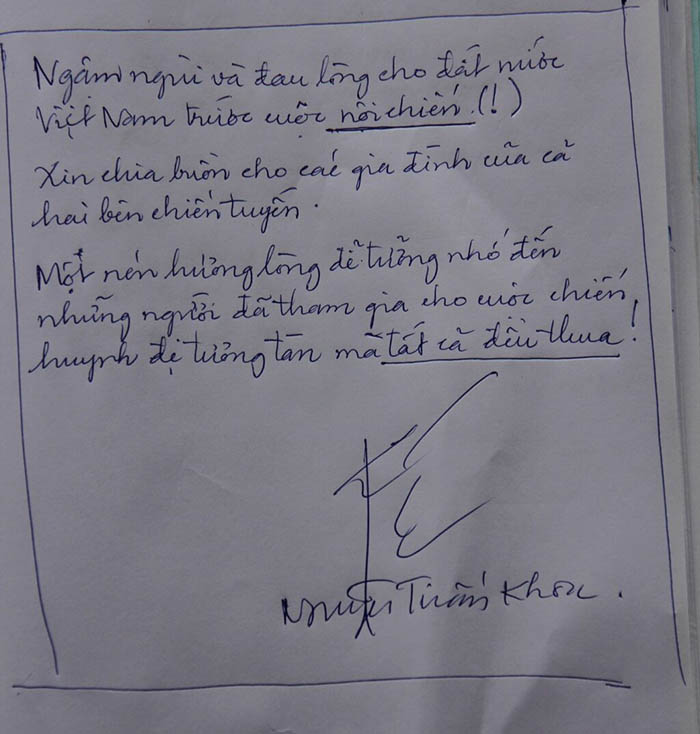 Ngậm ngùi và đau lòng cho đất nước
Việt Nam trước cuộc nội chiến.(!)
Xin chia buồn cho các gia đình của cả
hai bên chiến tuyến.
Một nén hương lòng để tưởng nhớ đến
những người đã tham gia cho cuộc chiến,
huynh đệ tương tàn mà tất cả đều thua!
Nguyễn Tuấn Khoa.